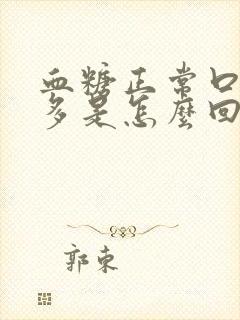 血糖正常口
多是怎麼回
郭東